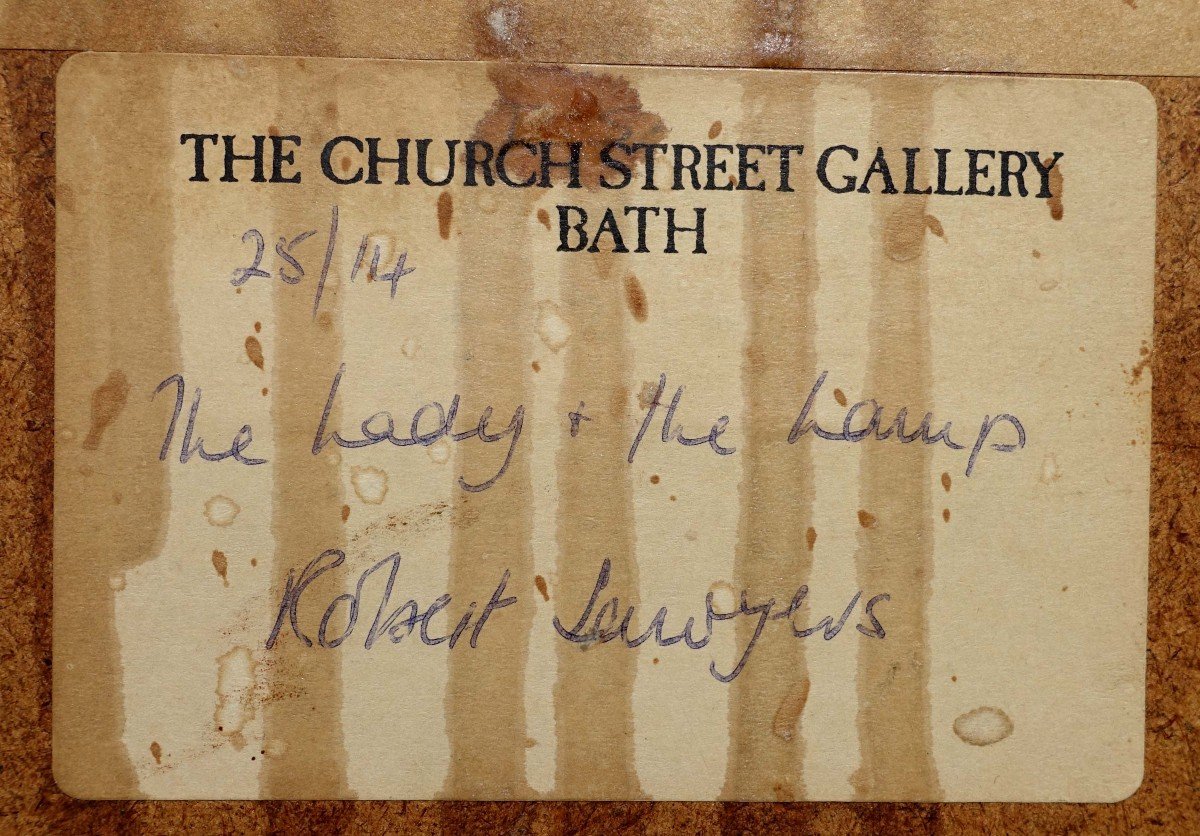 THE CHURCH STREET GALLERY
BATH
25/14
The Lady + the Lamp
Robert Sawyers